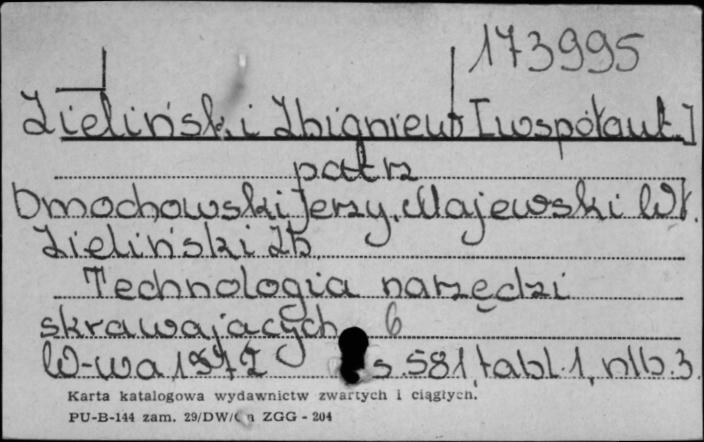 173995
Zieliński Zbigniew [współaut.]
patrz
Dmochowski Jerzy, Majewski Wł.
Zieliński Zb.
Technologia narzędzi
skrawających 6
W-wa 1972 s. 581, tabl. 1, nlb. 3.
Karta katalogowa wydawnictw zwartych i ciągłych.
PU-B-144 zam. 29/DW/ ZGG - 204